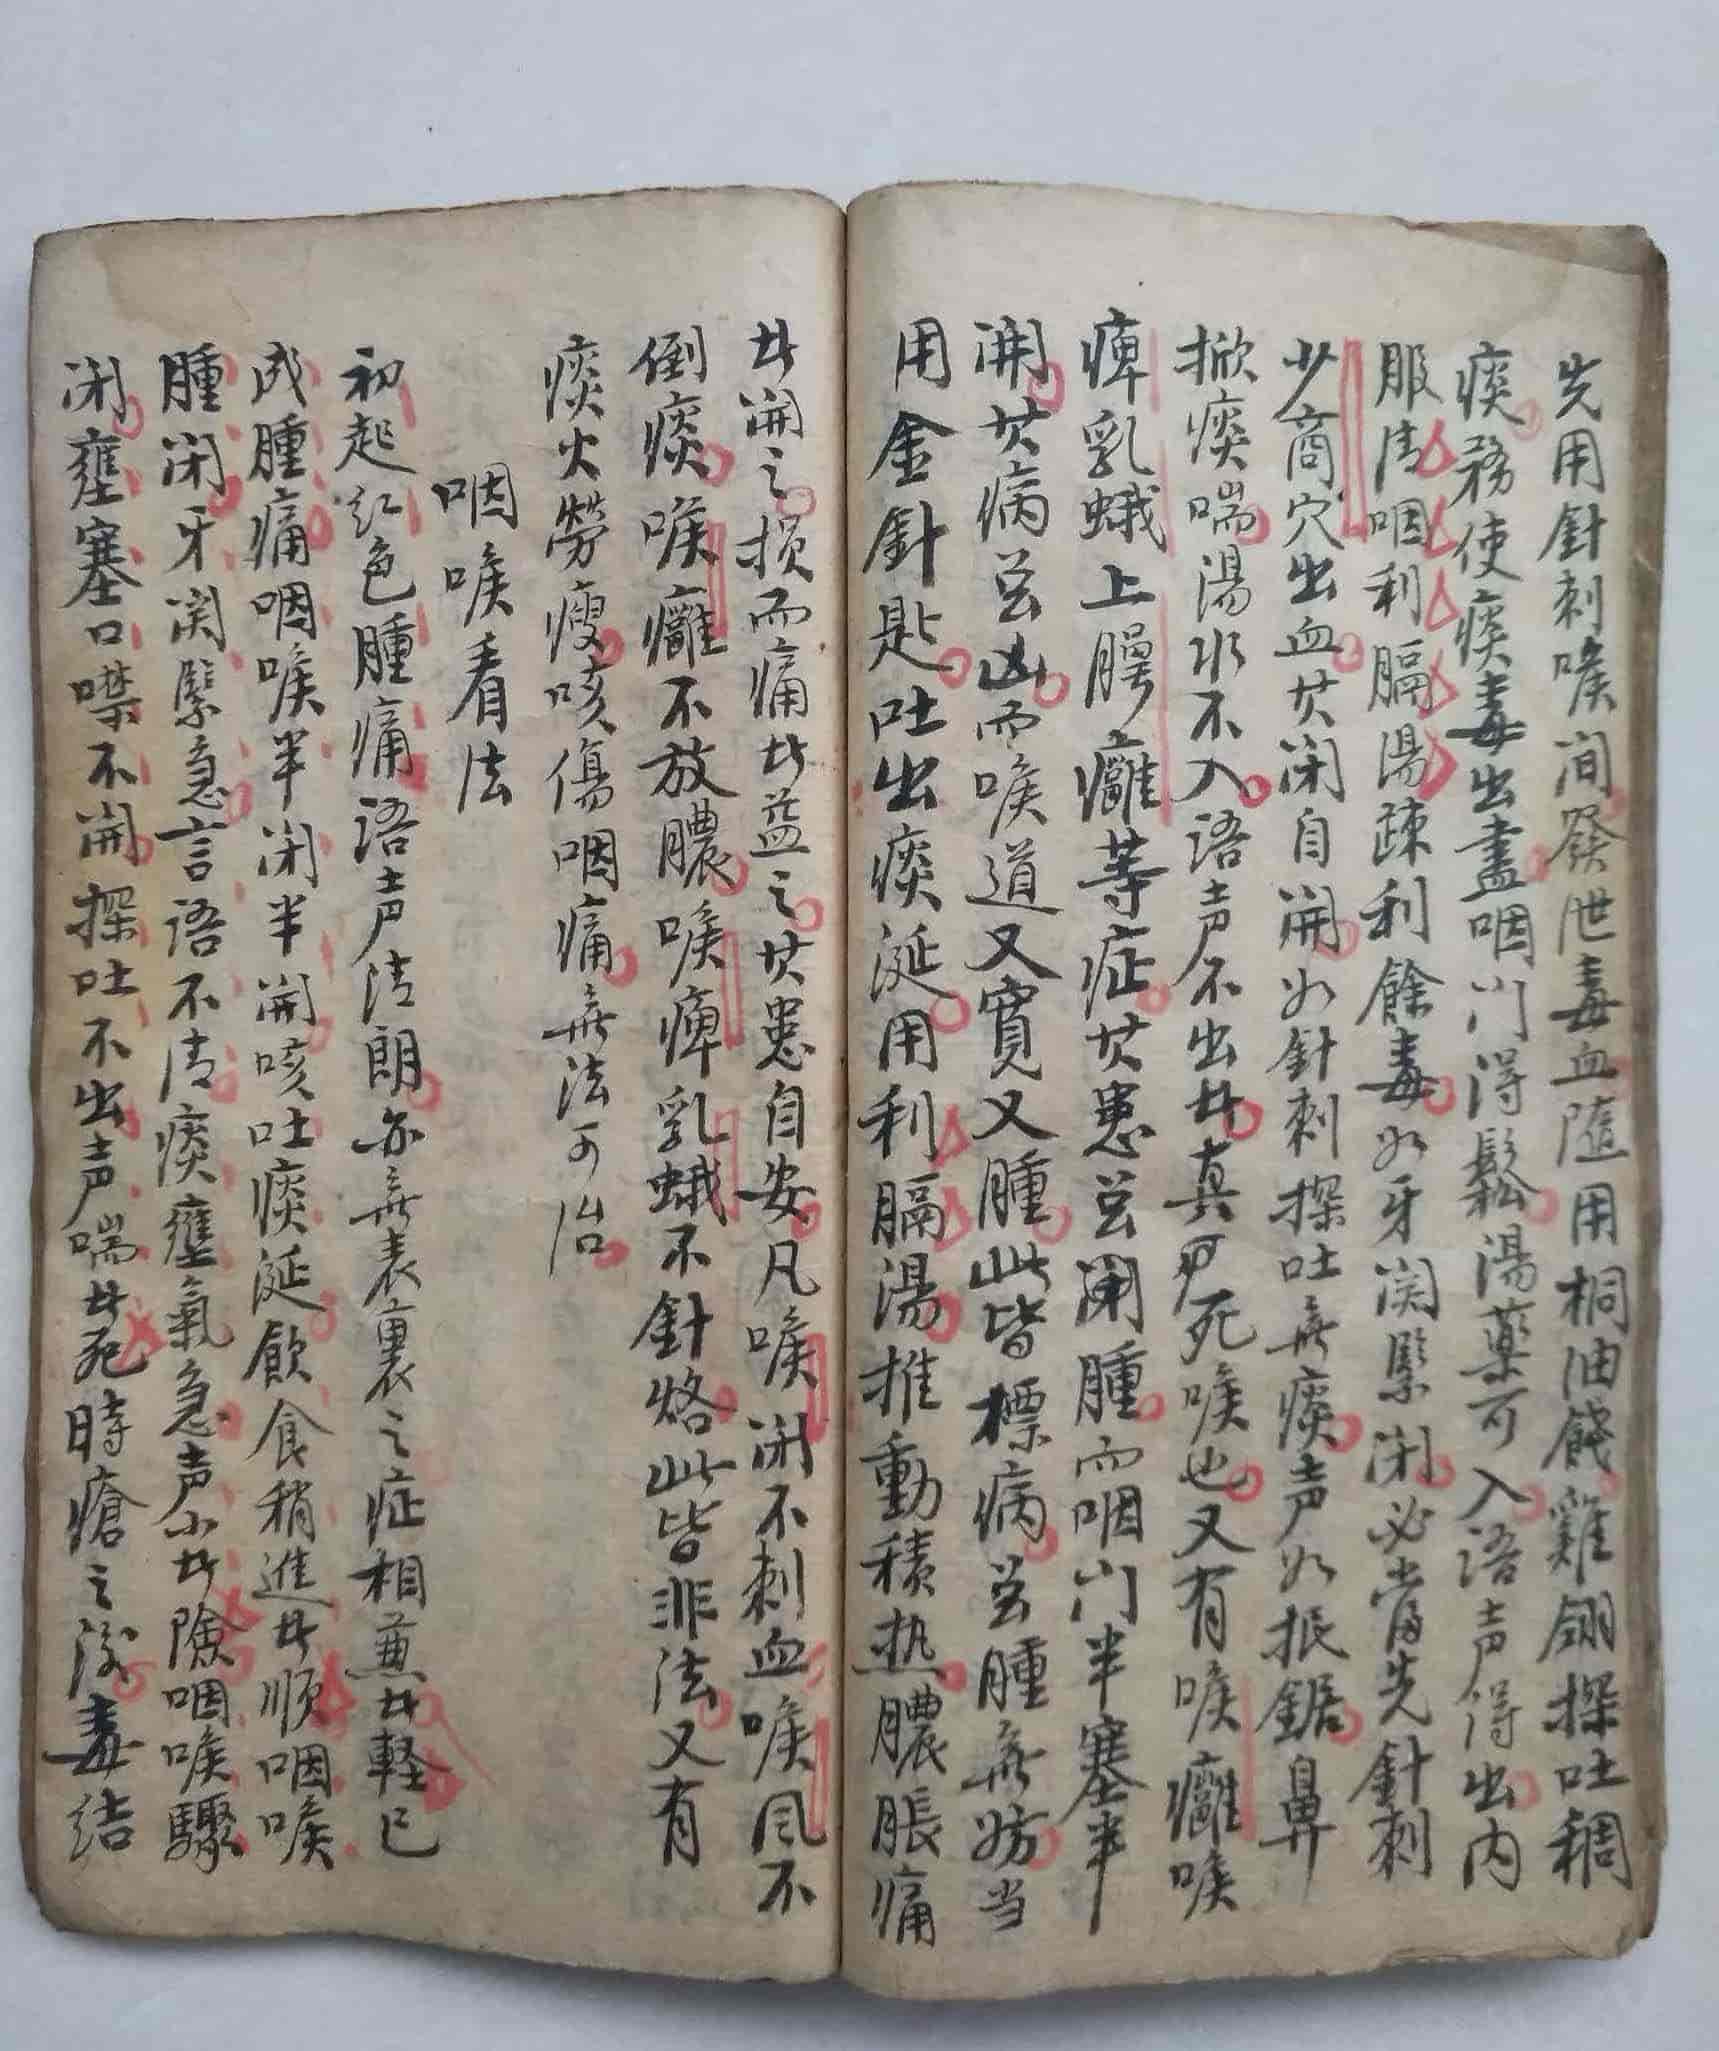 先用針刺喉间發泄毒血隨用桐油餞雞翎探吐稠
痰務使痰毒出盡咽门得鬆湯藥可入语声得出内
服清咽利膈湯疎利餘毒如牙関緊闭必當先針刺
少商穴出血其闭自開如針刺探吐無痰声如抿鋸鼻
掀痰喘湯水不入语声不出此真可死喉也又有喉癰喉
痺乳蛾上腭癰等症其患並闭腫而咽门半塞半
開其病並凶而喉道又寬又腫此皆標病並腫無妨当
用金針匙吐出痰涎用利膈湯推動積热膿脹痛
此開之损而痛此益之其患自安凡喉闭不刺血喉风不
倒痰喉癰不放膿喉痺乳蛾不針烙此皆非法又有
痰火勞瘦咳傷咽痛無法可治
咽喉看法
初起红色腫痛语声清朗亦無表裏之症相兼此軽已
成腫痛咽喉半闭半開咳吐痰涎飲食稍進此順咽喉
腫闭牙関緊急言语不清痰壅氣急声小此險咽喉驟
闭壅塞口噤不開探吐不出声喘此死時瘡之後毒结